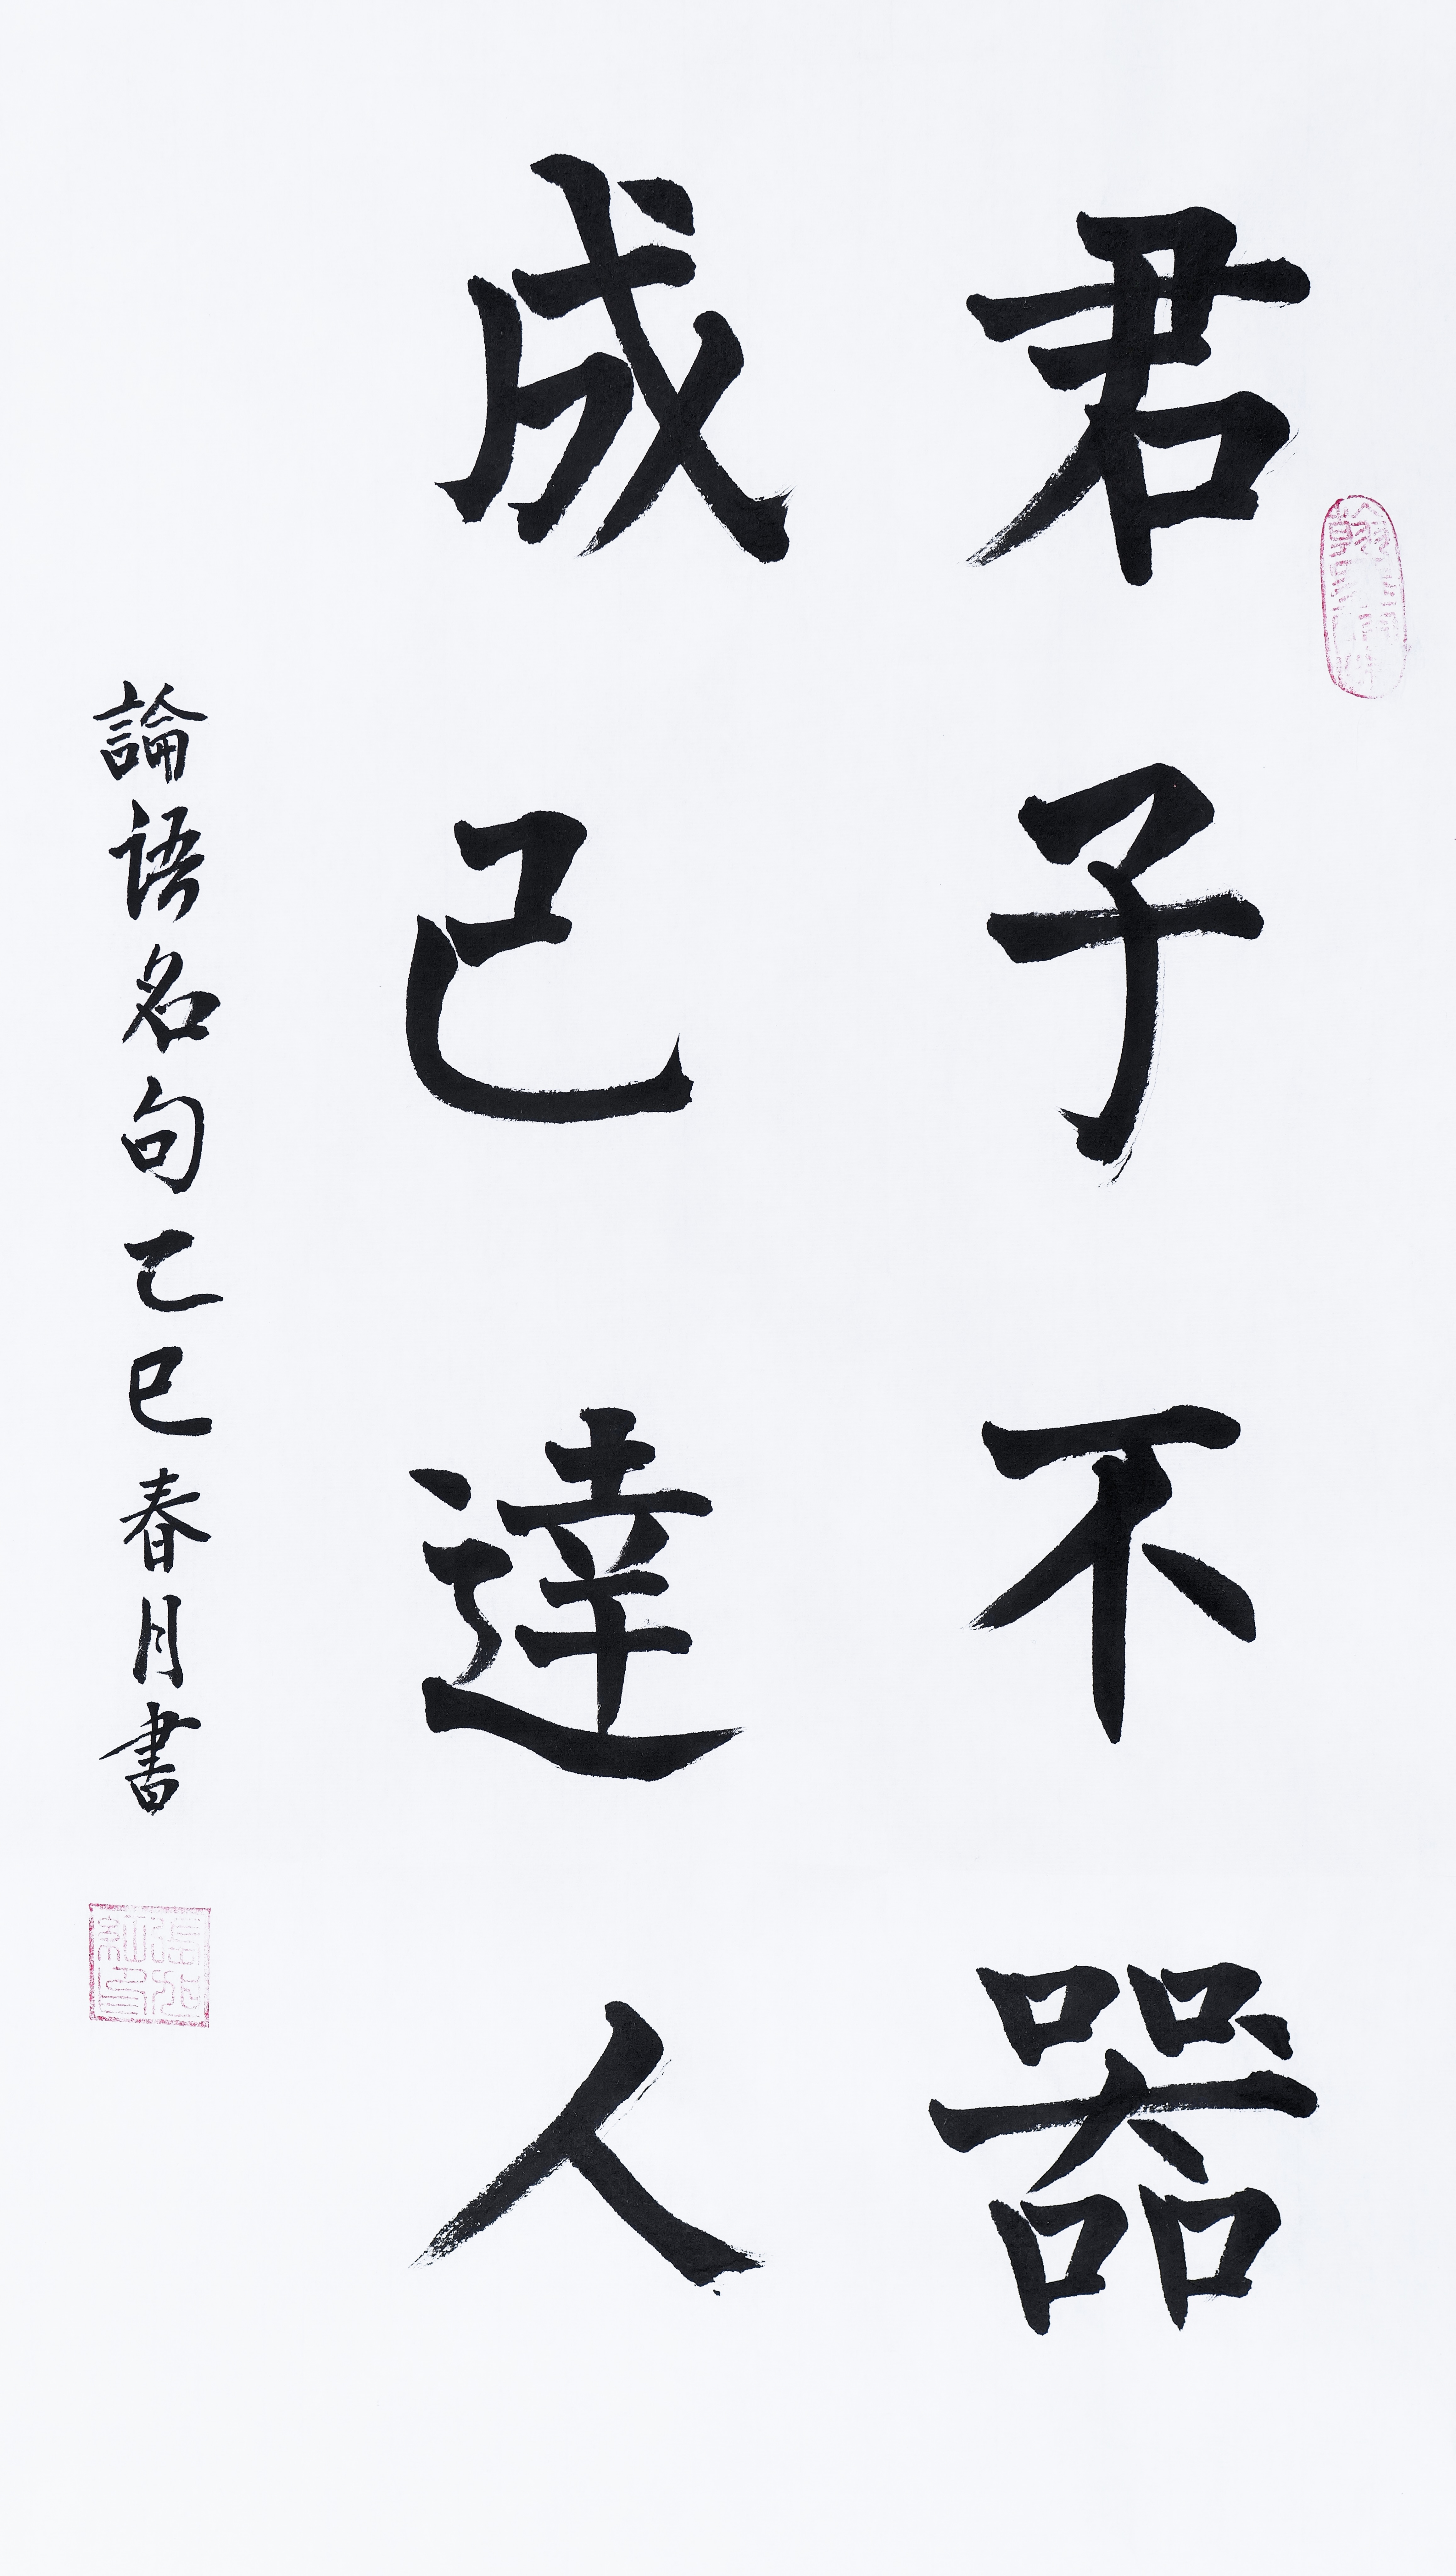 君子不器
成己達人
論语名句乙巳春月書